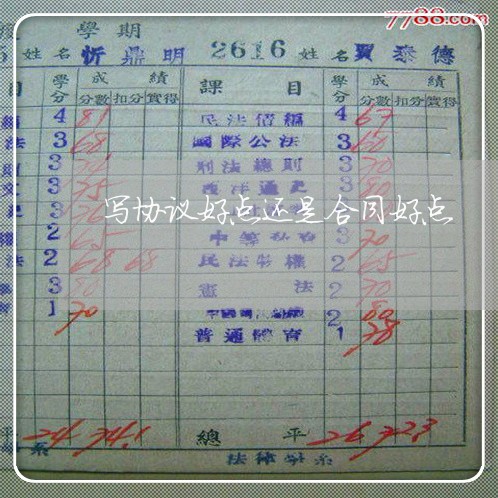 7788.com
學期
5 姓名 忻鼎明 2616 姓名 賈泰德
目 學分 成績 課目 學分 成績
分數 扣分 實得 分數 扣分 實得
4 81 民法債編 4 67
法 3 68 國際公法 3 60
3 刑法總則 3 70
3 75 西洋通史 3 80
3
2 65 3 70
法 2 68 68 民法物權 2 65
3 80 憲法 2 70
1 70 2 80
普通體育 1 78
写协议好点还是合同好点
平 24 74.1 總平 26 72.3
系 法律學系